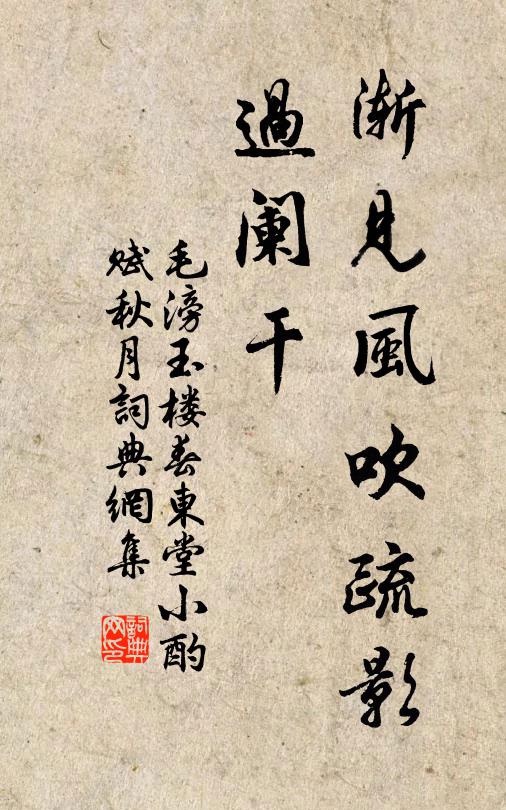 漸見風吹疏影
過闌干
毛滂玉楼春東堂小酌
赋秋月詞典網集
詞典
网印